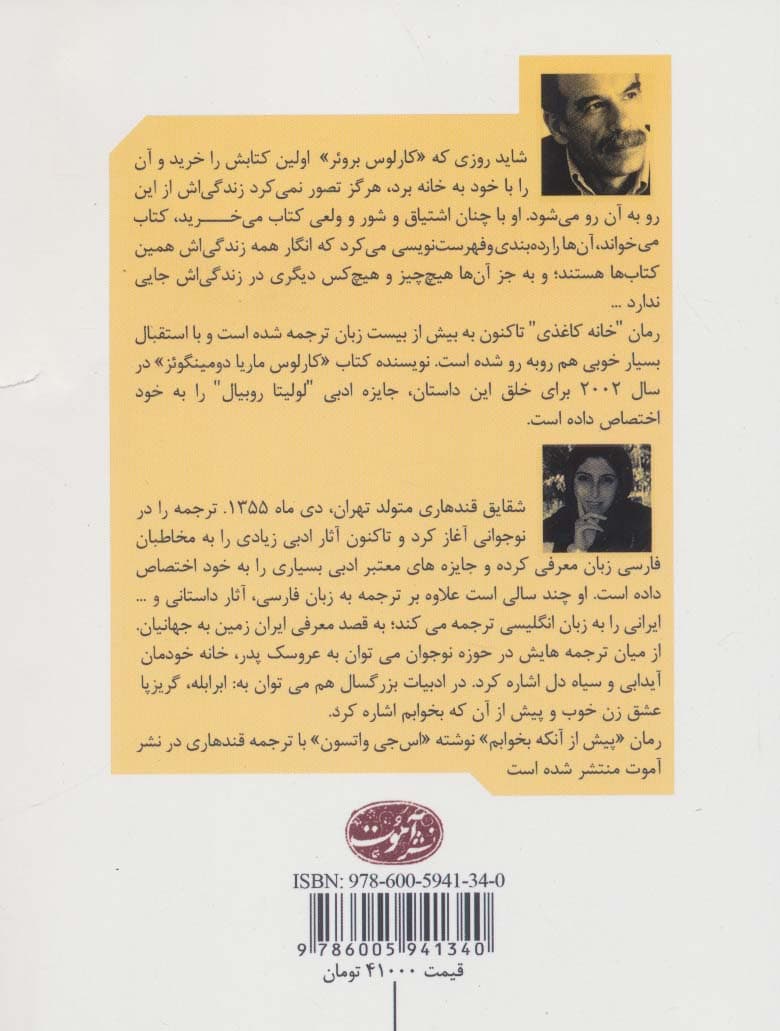 شاید روزی که «کارلوس بروئر» اولین کتابش را خرید و آن
را با خود به خانه برد، هرگز تصور نمی‌کرد زندگی‌اش از این
رو به آن رو می‌شود. او با چنان اشتیاق و شور و ولعی کتاب می‌خـــرید، کتاب
می‌خواند، آن‌ها را رده‌بندی و فهرست‌نویسی می‌کرد که انگار همه زندگی‌اش همین
کتاب‌ها هستند؛ و به جز آن‌ها هیچ‌چیز و هیچ‌کس دیگری در زندگی‌اش جایی
ندارد ...
رمان "خانه کاغذی" تاکنون به بیش از بیست زبان ترجمه شده است و با استقبال
بسیار خوبی هم روبه رو شده است. نویسنده کتاب «کارلوس ماریا دومینگوئز» در
سال ۲۰۰۲ برای خلق این داستان، جایزه ادبی "لولیتا روبیال" را به خود
اختصاص داده است.
شقایق قندهاری متولد تهران، دی ماه ۱۳۵۵. ترجمه را در
نوجوانی آغاز کرد و تاکنون آثار ادبی زیادی را به مخاطبان
فارسی زبان معرفی کرده و جایزه های معتبر ادبی بسیاری را به خود اختصاص
داده است. او چند سالی است علاوه بر ترجمه به زبان فارسی، آثار داستانی و ...
ایرانی را به زبان انگلیسی ترجمه می کند؛ به قصد معرفی ایران زمین به جهانیان.
از میان ترجمه هایش در حوزه نوجوان می توان به عروسک پدر، خانه خودمان
آیدابی و سیاه دل اشاره کرد. در ادبیات بزرگسال هم می توان به: ابرابله، گریزپا
عشق زن خوب و پیش از آن که بخوابم اشاره کرد.
رمان «پیش از آنکه بخوابم» نوشته «اس‌جی واتسون» با ترجمه قندهاری در نشر
آموت منتشر شده است
نشر آموت
ISBN: 978-600-5941-34-0
9 786005 941340
قیمت ۴۱۰۰۰ تومان